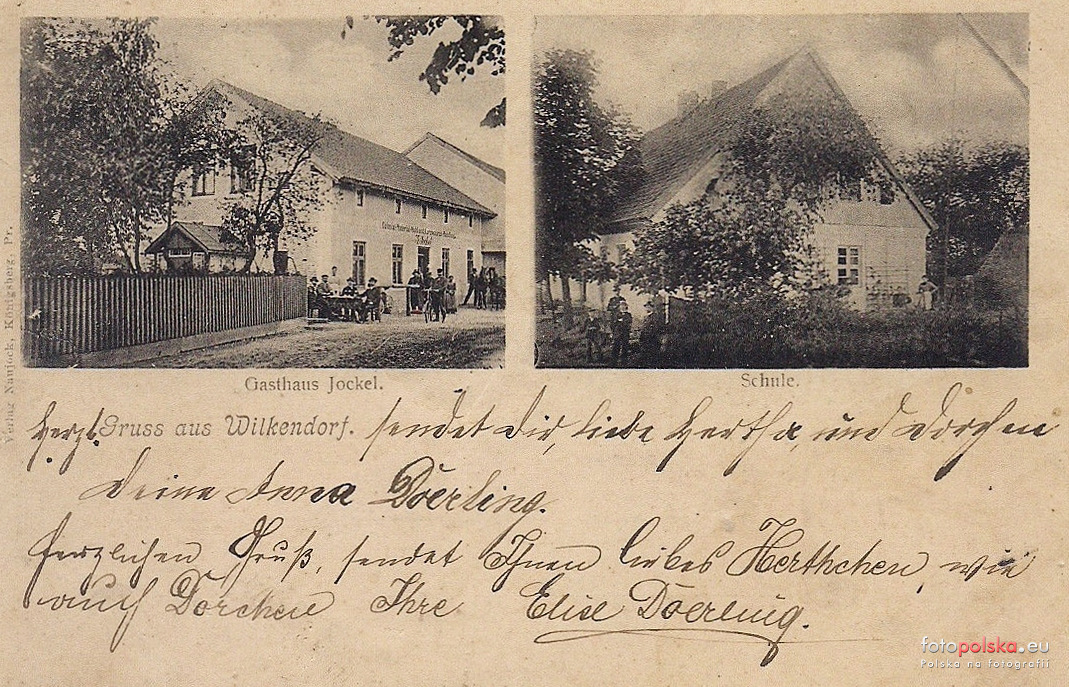 Gasthaus Jockel.
Schule.
Verlag Naujock, Königsberg, Pr.
Herzl. Gruss aus Wilkendorf. sendet Dir, liebe Hertha, und Dorchen
Deine Anna Doerling.
Herzlichen Gruß, sendet Ihnen liebes Herthchen, wie
auch Dorchen Ihre Elise Doerling.
fotopolska.eu
Polska na fotografii